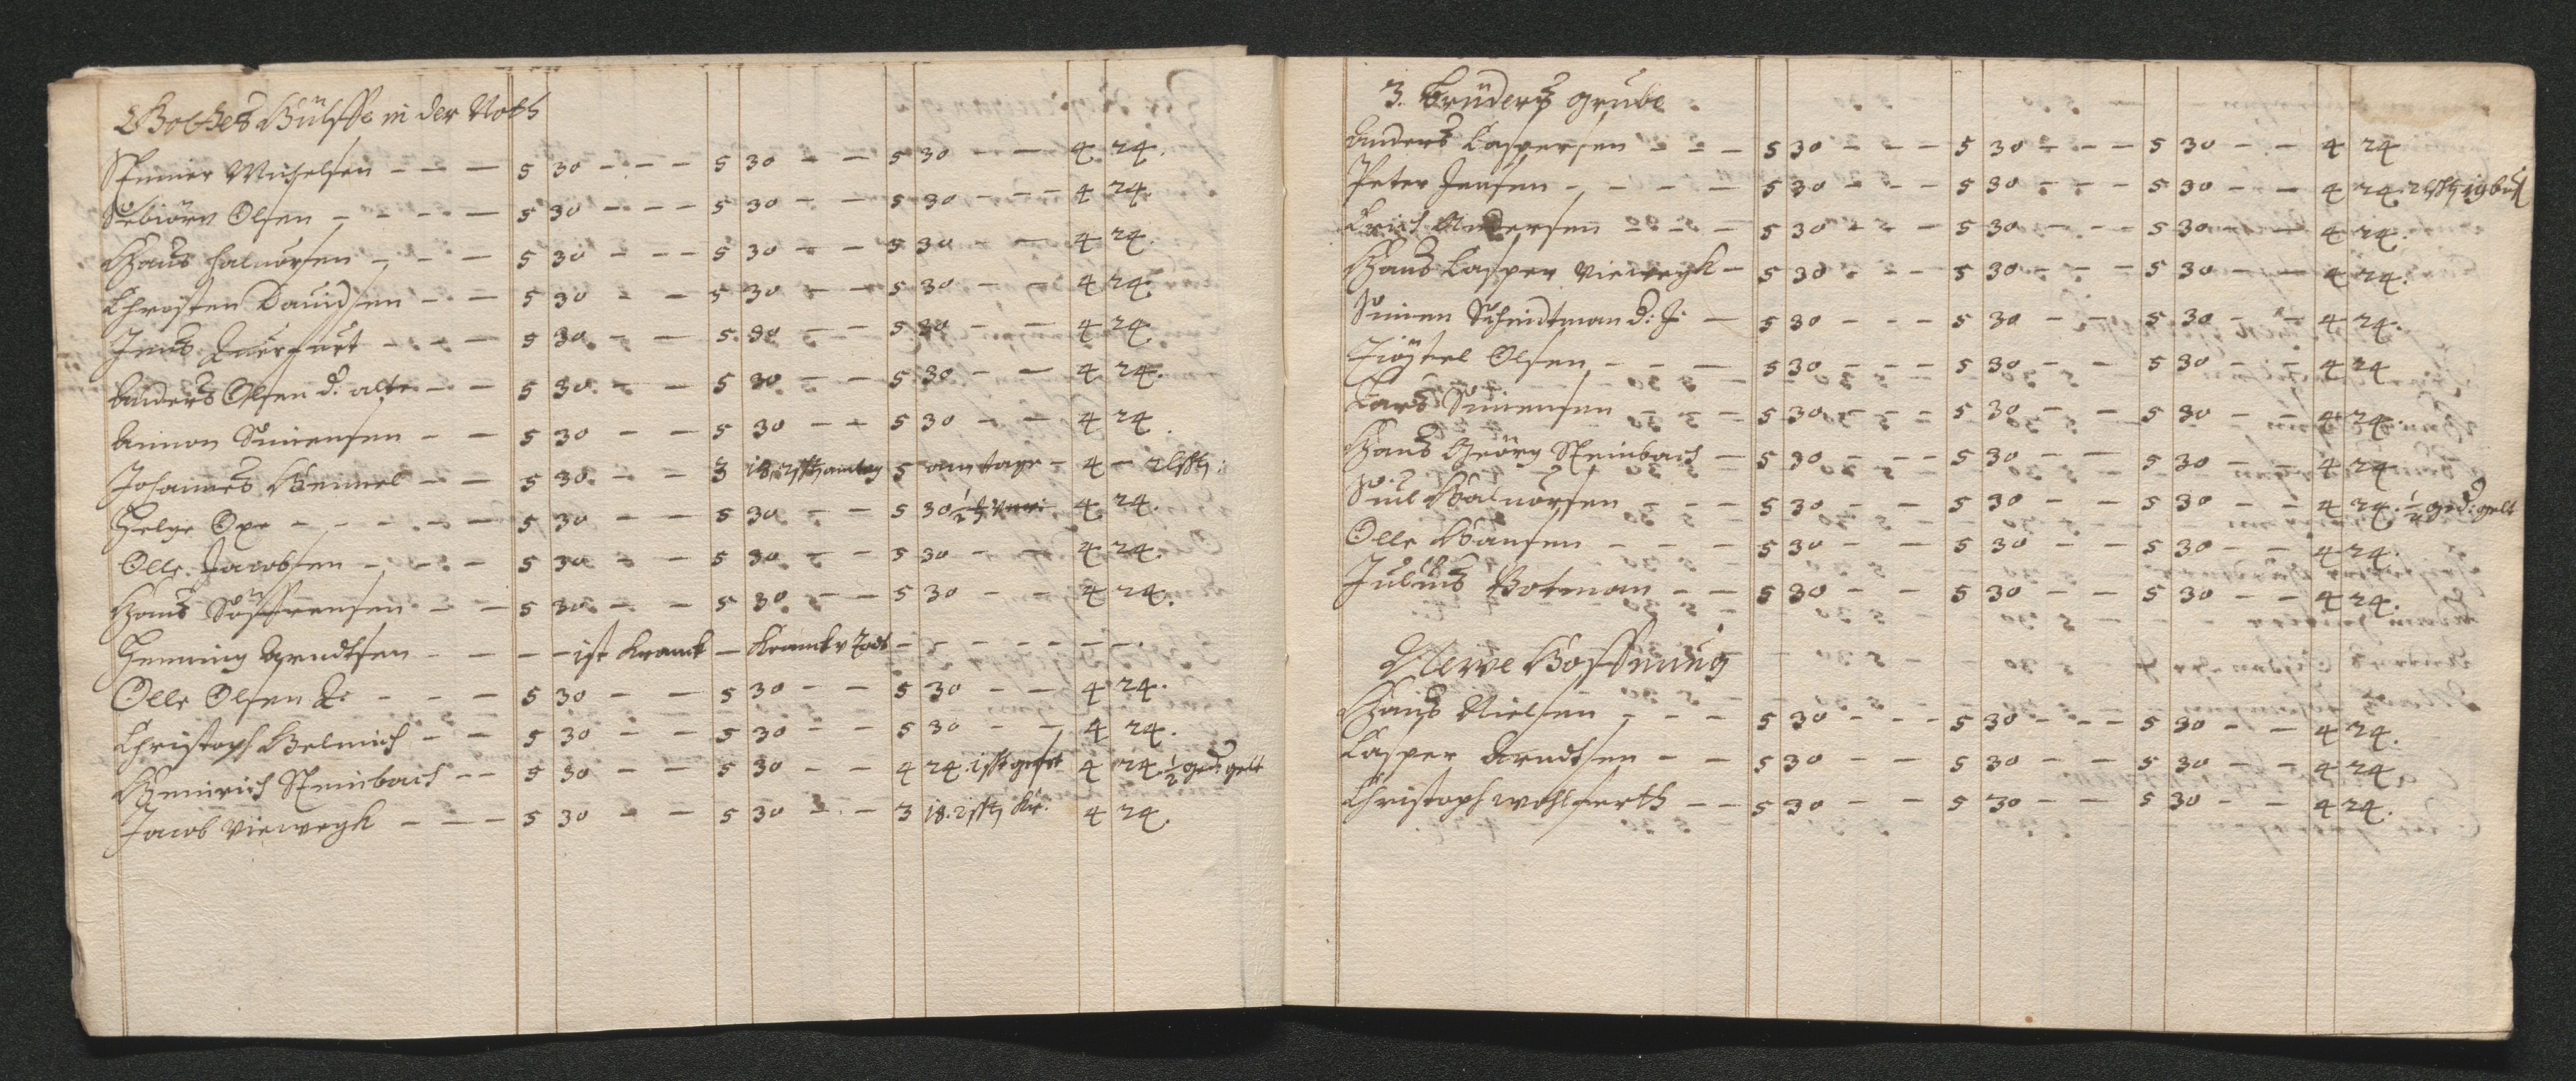 Gottes Hülffe in der Noth
Steiner Michelsen - - - 5 30 - - - 5 30 - - 5 30 - - 4 24.
Sebiörn Olsen - - - - 5 30 - - - 5 30 - - 5 30 - - - 4 24.
Hans Haluorsen - - - 5 30 - - - 5 30 - - 5 30 - - 4 24.
Christen Dauidsen - - 5 30 - - 5 30 - - 5 30 - - 4 24.
Jens Querfurt - - - 5 30 - - 5 30 - - 5 30 - - 4 24.
Anders Olsen d. alte - - 5 30 - - 5 30 - - 5 30 - - 4 24.
Amon Simensen - - 5 30 - - 5 30 - - 5 30 - - 4 24.
Johannes Himmel - - 5 30 - - 3 18. 5 4 -
Helge Oxe - - - - - 5 30 - - 5 30 - - 5 30 4 24.
Olle Jacobsen - - - - 5 30 - - 5 30 - - 5 30 - - 4 24.
Hans Söffrensen - - 5 30 - - 5 30 - - 5 30 - - 4 24.
Henning Arndtsen - - - - ist Kranck -
Olle Olsen - - - 5 30 - - 5 30 - - 5 30 - - 4 24.
Christoph Helmich - - 5 30 - - 5 30 - - 5 30 - - 4 24.
Heinrich Steinbach - - 5 30 - - 5 30 - - 4 24. 4 24. 1/2 ged: gelt
Jacob Viewegk - - - 5 30 - - 5 30 - - 3 18. 4 24.
3. Brüders grube
Anders Caspersen - - - 5 30 - - - 5 30 - - - 5 30 - - 4 24
Peter Jensen - - - - 5 30 - - - 5 30 - - - 5 30 - - 4 24.
Erich Andersen - - - 5 30 - - - 5 30 - - - 5 30 - - 4 24.
Hans Casper Viewegk - 5 30 - - - 5 30 - - - 5 30 - - 4 24.
Simen Scheidtman d: J: - 5 30 - - - 5 30 - - 5 30 - - 4 24.
Kiöstel Olsen - - - 5 30 - - - 5 30 - - 5 30 - - 4 24
Lars Simensen - - - 5 30 - - - 5 30 - - 5 30 - - 4 24.
Hans Geörg Steinbach - 5 30 - - - 5 30 - - 5 30 - - 4 24
Haluorsen - - - 5 30 - - 5 30 - - 5 30 - - 4 24. ged: gelt
Olle Hansen - - - 5 30 - - 5 30 - - 5 30 - - 4 24.
Julius Botman - - 5 30 - - 5 30 - - 5 30 - - 4 24.
Newe Hoffnung
Hans Nielsen - - - 5 30 - - - 5 30 - - - 5 30 - - 4 24.
Casper Arndtsen - - 5 30 - - 5 30 - - 5 30 - - 4 24.
Christoph Wohlfarth - - 5 30 - - 5 30 - - 5 30 - - 4 24.